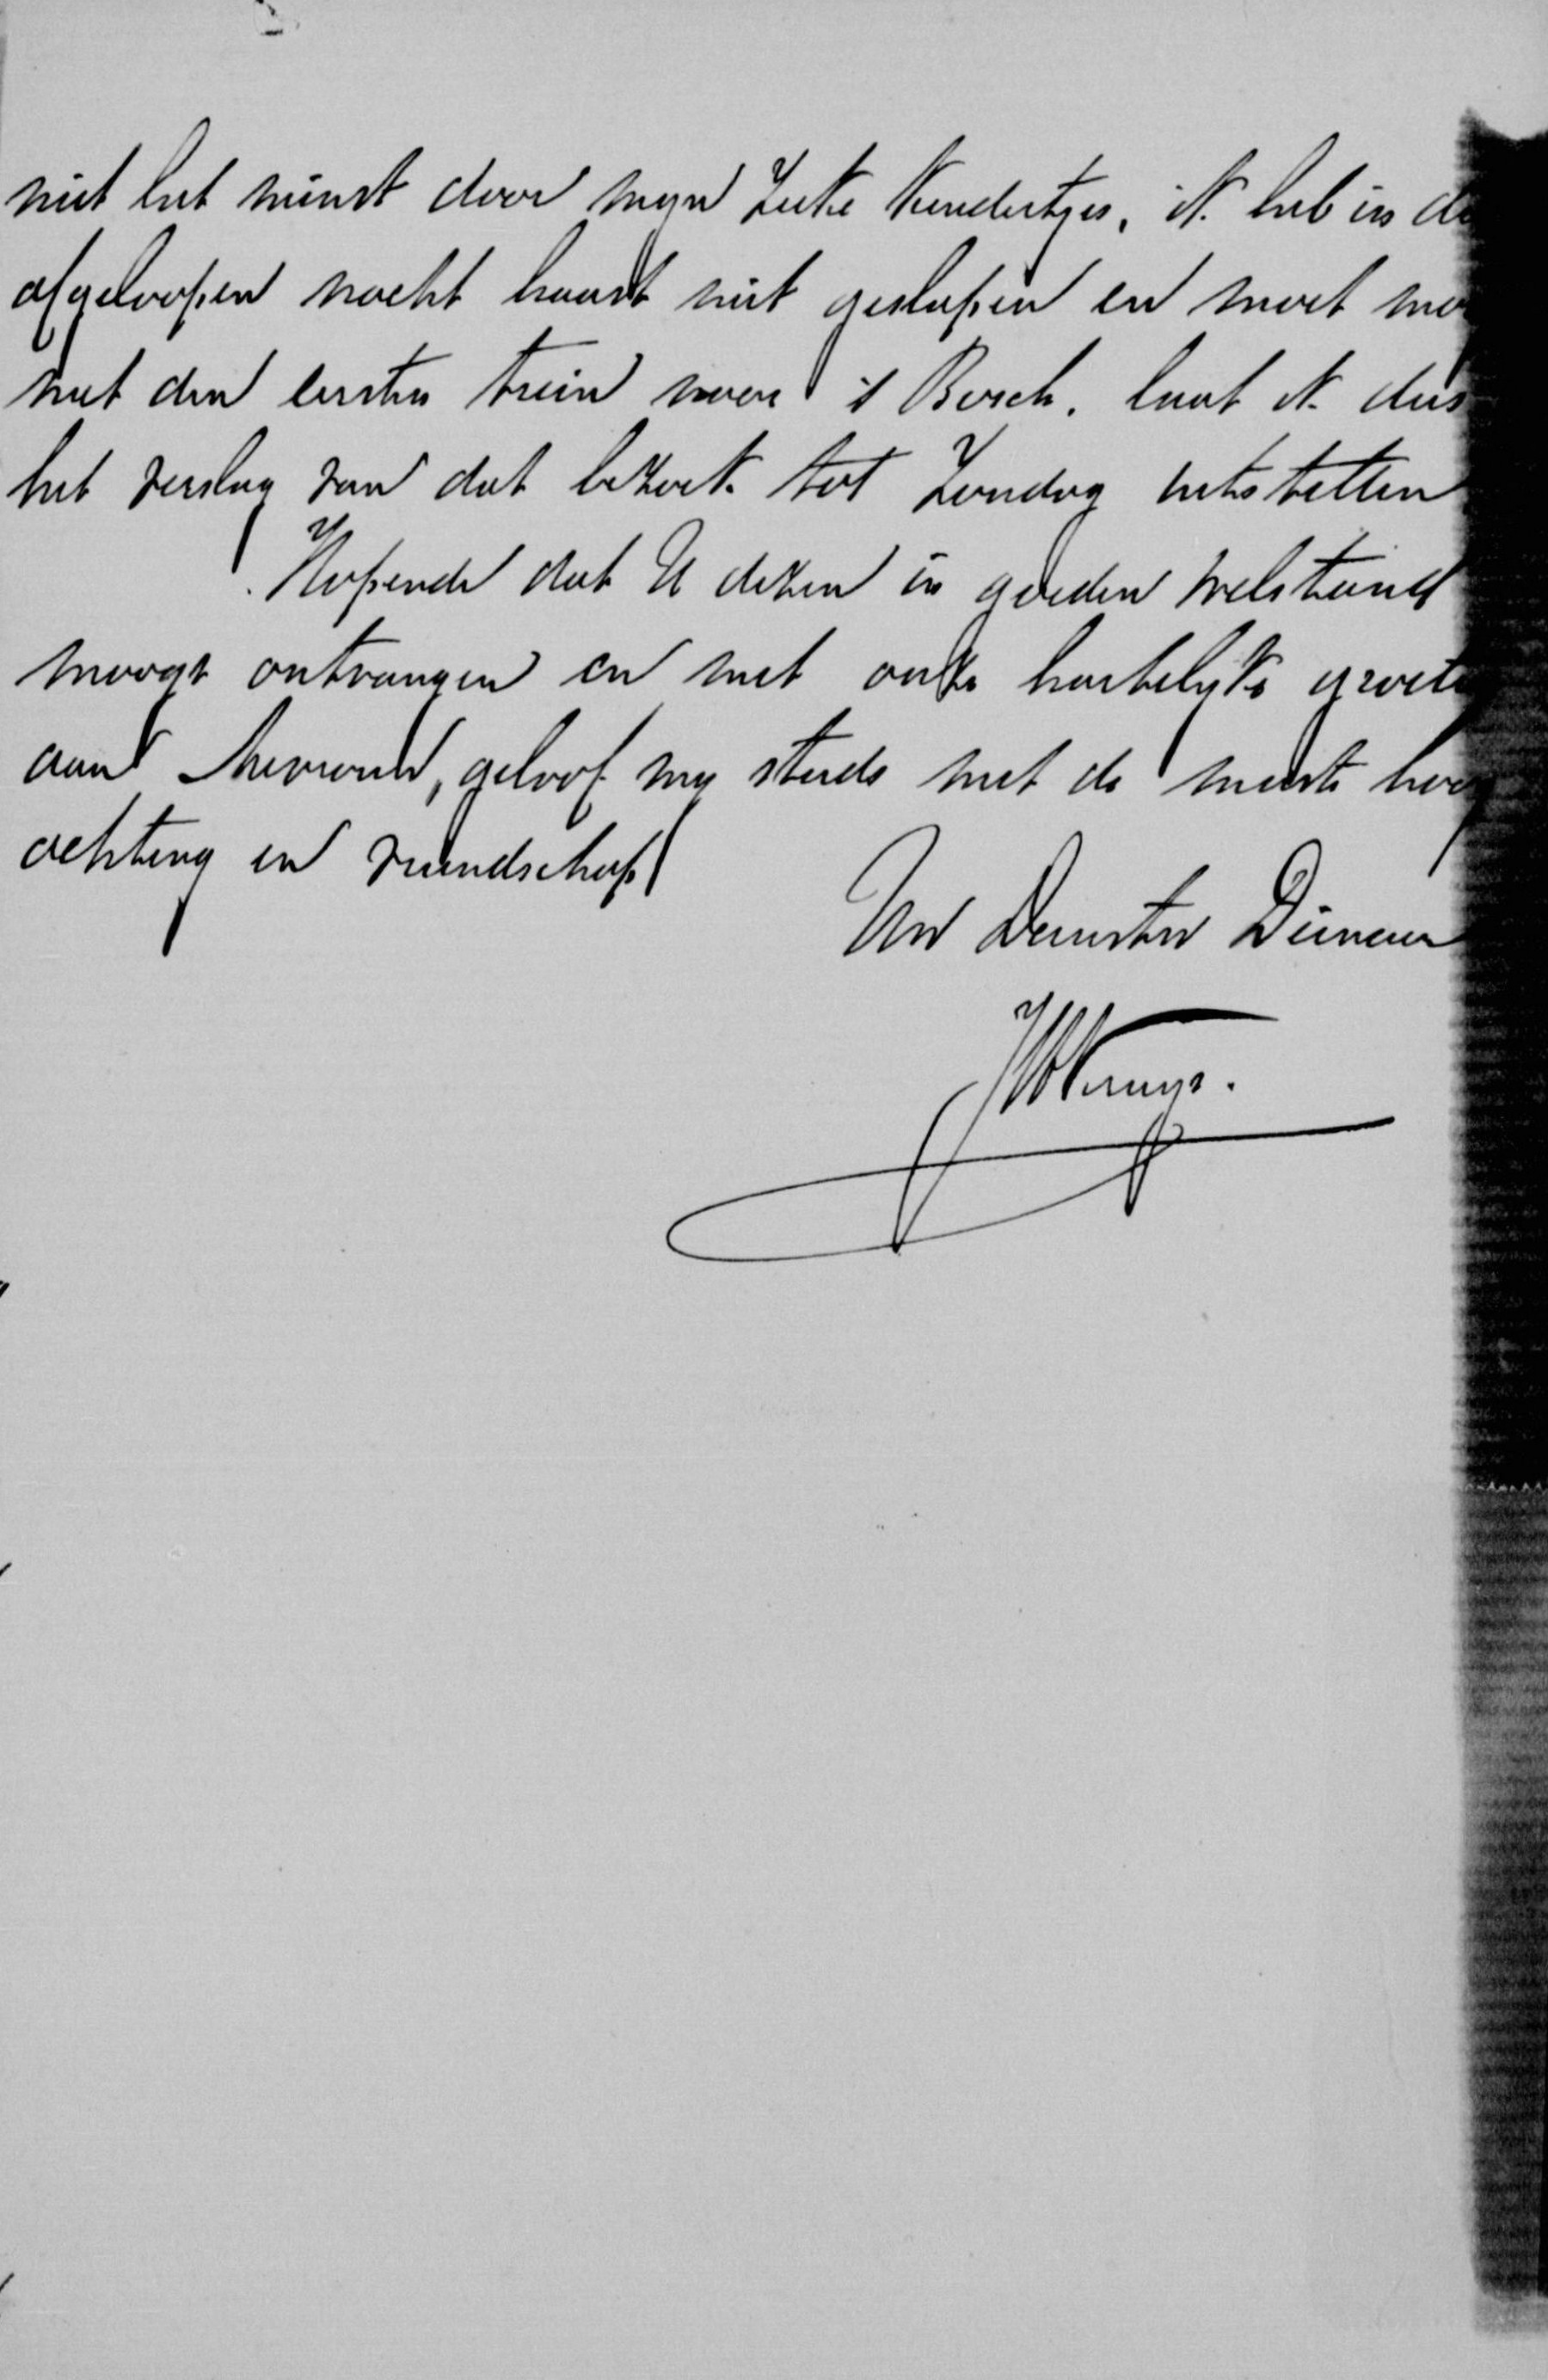 niet het minst door mijn zieke kindertjes, ik heb in de
afgeloopen nacht haast niet geslapen en moet mor
met den eersten trein naar 's Bosch. laat ik dus
het verslag van dat bezoek tot Zondag uitstellen
Hopende dat U dezen in goeden welstand
moogt ontvangen en met onze hartelijke groete
aan Mevrouw, geloof mij steeds met de meeste hoog
achting en vriendschap
Uw Dienstw Dienaar